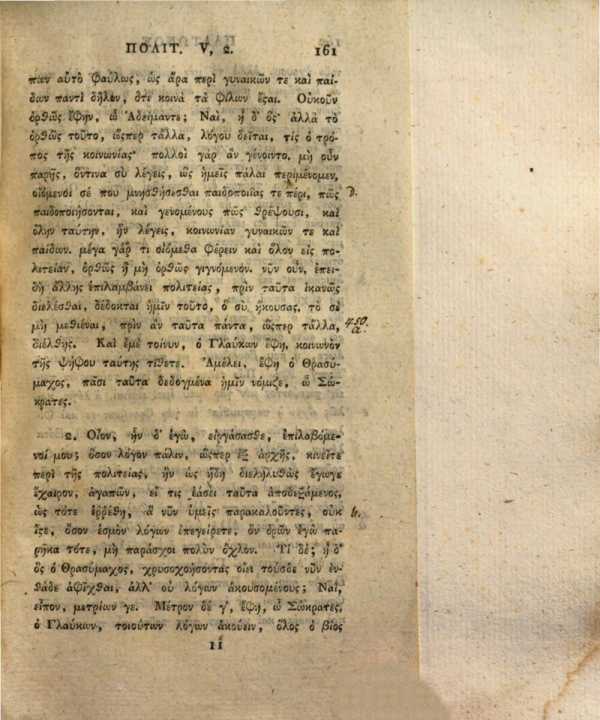 ΠΟΛΙΤ. V, 2. 161
πειν αὐτὸ φαύλως, ὡς ἄρα περὶ γυναικῶν τε καὶ παί-
δων παντὶ δῆλον, ὅτι κοινὰ τὰ φίλων ἔσαι. Οὐκοῦν
ὀρθῶς ἔφην, ὦ Ἀδείμαντε; Ναί, ἦ δ᾽ ὅς· ἀλλὰ τὸ
ὀρθῶς τοῦτο, ὥσπερ τἄλλα, λόγου δεῖται, τίς ὁ τρό-
πος τῆς κοινωνίας· πολλοὶ γὰρ ἂν γένοιντο. μὴ οὖν
παρῇς, ὅντινα σὺ λέγεις, ὡς ἡμεῖς πάλαι περιμένομεν,
οἰόμενοί σέ που μνησθήσεσθαι παιδοποιΐας τε πέρι, πῶς
παιδοποιήσονται, καὶ γενομένους πῶς θρέψουσι, καὶ
ὅλην ταύτην, ἣν λέγεις, κοινωνίαν γυναικῶν τε καὶ
παίδων. μέγα γάρ τι οἰόμεθα φέρειν καὶ ὅλον εἰς πο-
λιτείαν, ὀρθῶς ἢ μὴ ὀρθῶς γιγνόμενον. νῦν οὖν, ἐπει-
δὴ ἄλλης ἐπιλαμβάνει πολιτείας, πρὶν ταῦτα ἱκανῶς
διελέσθαι, δέδοκται ἡμῖν τοῦτο, ὃ σὺ ἤκουσας, τὸ σὲ
μὴ μεθιέναι, πρὶν ἂν ταῦτα πάντα, ὥσπερ τἄλλα, 450.
διέλθῃς. Καὶ ἐμὲ τοίνυν, ὁ Γλαύκων ἔφη, κοινωνὸν a.
τῆς ψήφου ταύτης τίθετε. Ἀμέλει, ἔφη ὁ Θρασύ-
μαχος, πᾶσι ταῦτα δεδογμένα ἡμῖν νόμιζε, ὦ Σώ-
κρατες.
2. Οἷον, ἦν δ᾽ ἐγὼ, εἰργάσασθε, ἐπιλαβόμε-
νοί μου; ὅσον λόγον πάλιν, ὥσπερ ἐξ ἀρχῆς, κινεῖτε
περὶ τῆς πολιτείας, ἣν ὡς ἤδη διεληλυθὼς ἔγωγε
ἔχαιρον, ἀγαπῶν, εἴ τις ἐάσει ταῦτα ἀποδεξάμενος,
ὡς τότε ἐῤῥέθη, ἃ νῦν ὑμεῖς παρακαλοῦντες, οὐκ b.
ἴςε, ὅσον ἑσμὸν λόγων ἐπεγείρετε, ὃν ὁρῶν ἐγὼ πα-
ρῆκα τότε, μὴ παράσχοι πολὺν ὄχλον. Τί δέ; ἦ δ᾽
ὃς ὁ Θρασύμαχος, χρυσοχοήσοντας οἴει τούσδε νῦν ἐν-
θάδε ἀφῖχθαι, ἀλλ᾽ οὐ λόγων ἀκουσομένους; Ναί,
εἶπον, μετρίων γε. Μέτρον δέ γ᾽, ἔφη, ὦ Σώκρατες,
ὁ Γλαύκων, τοιούτων λόγων ἀκούειν, ὅλος ὁ βίος
11